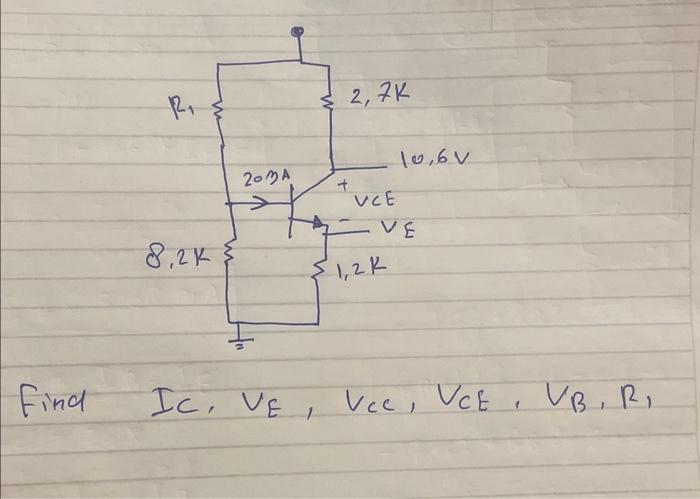 R₁
2,7K
10,6V
20 mA
+
VCE
-
VE
8,2K
1,2K
Find IC, VE, VCC, VCE, VB, R₁